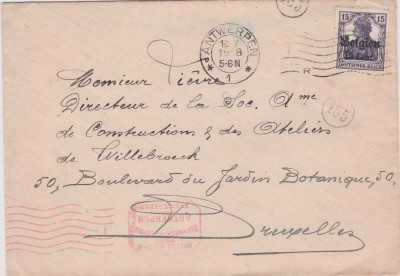 155
ANTWERPEN
1918
5-6N
1
15 15
Belgien
15 Cent.
DEUTSCHES REICH
R
155
Monsieur Lièvre
Directeur de la Soc. Ame
de Constructions & des Ateliers
de Willebroeck
50, Boulevard du Jardin Botanique, 50.
Bruxelles
ANTWERPEN